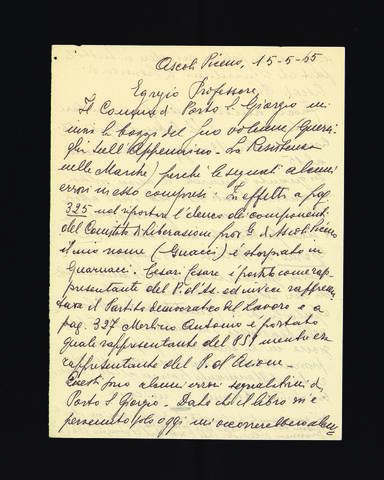 Ascoli Piceno, 15-5-65
Egregio Professore,
Il Comune di Porto S. Giorgio mi
invia le bozze del suo volume (Guerri-
glia sull'Appennino - La Resistenza
nelle Marche, perchè le segnali alcuni
errori in esso compresi: In effetti a pag.
325 nel riportare l'elenco dei componenti
del Comitato di Liberazione prov. di Ascoli Piceno
il mio nome (Gnacci) è storpiato in
Guarnacci. Tesari Cesare è portato come rap-
presentante del P.d'Az. ed invece rappresen-
tava il Partito democratico del Lavoro e a
pag. 327 Merlino Antonio è portato
quale rappresentante del PSI mentre era
rappresentante del P. d'Azione.
Questi sono alcuni errori segnalatimi da
Porto S. Giorgio. Dato che il libro mi è
pervenuto solo oggi mi occorrerebbero alcu-